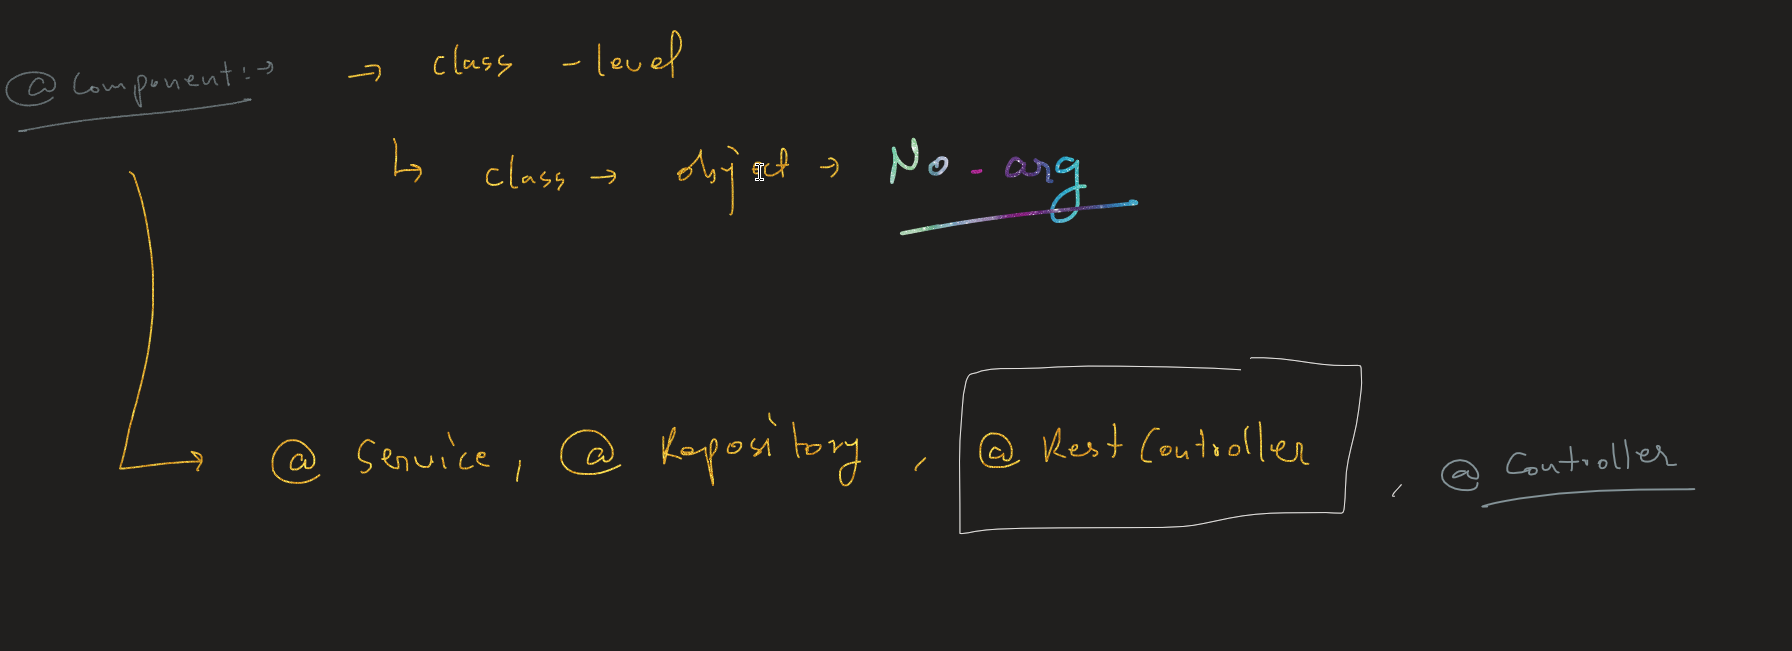 @ Component :→ → class - level
↳ class → object → No - arg
↳ @ Service, @ Repository, @ Rest Controller, @ Controller